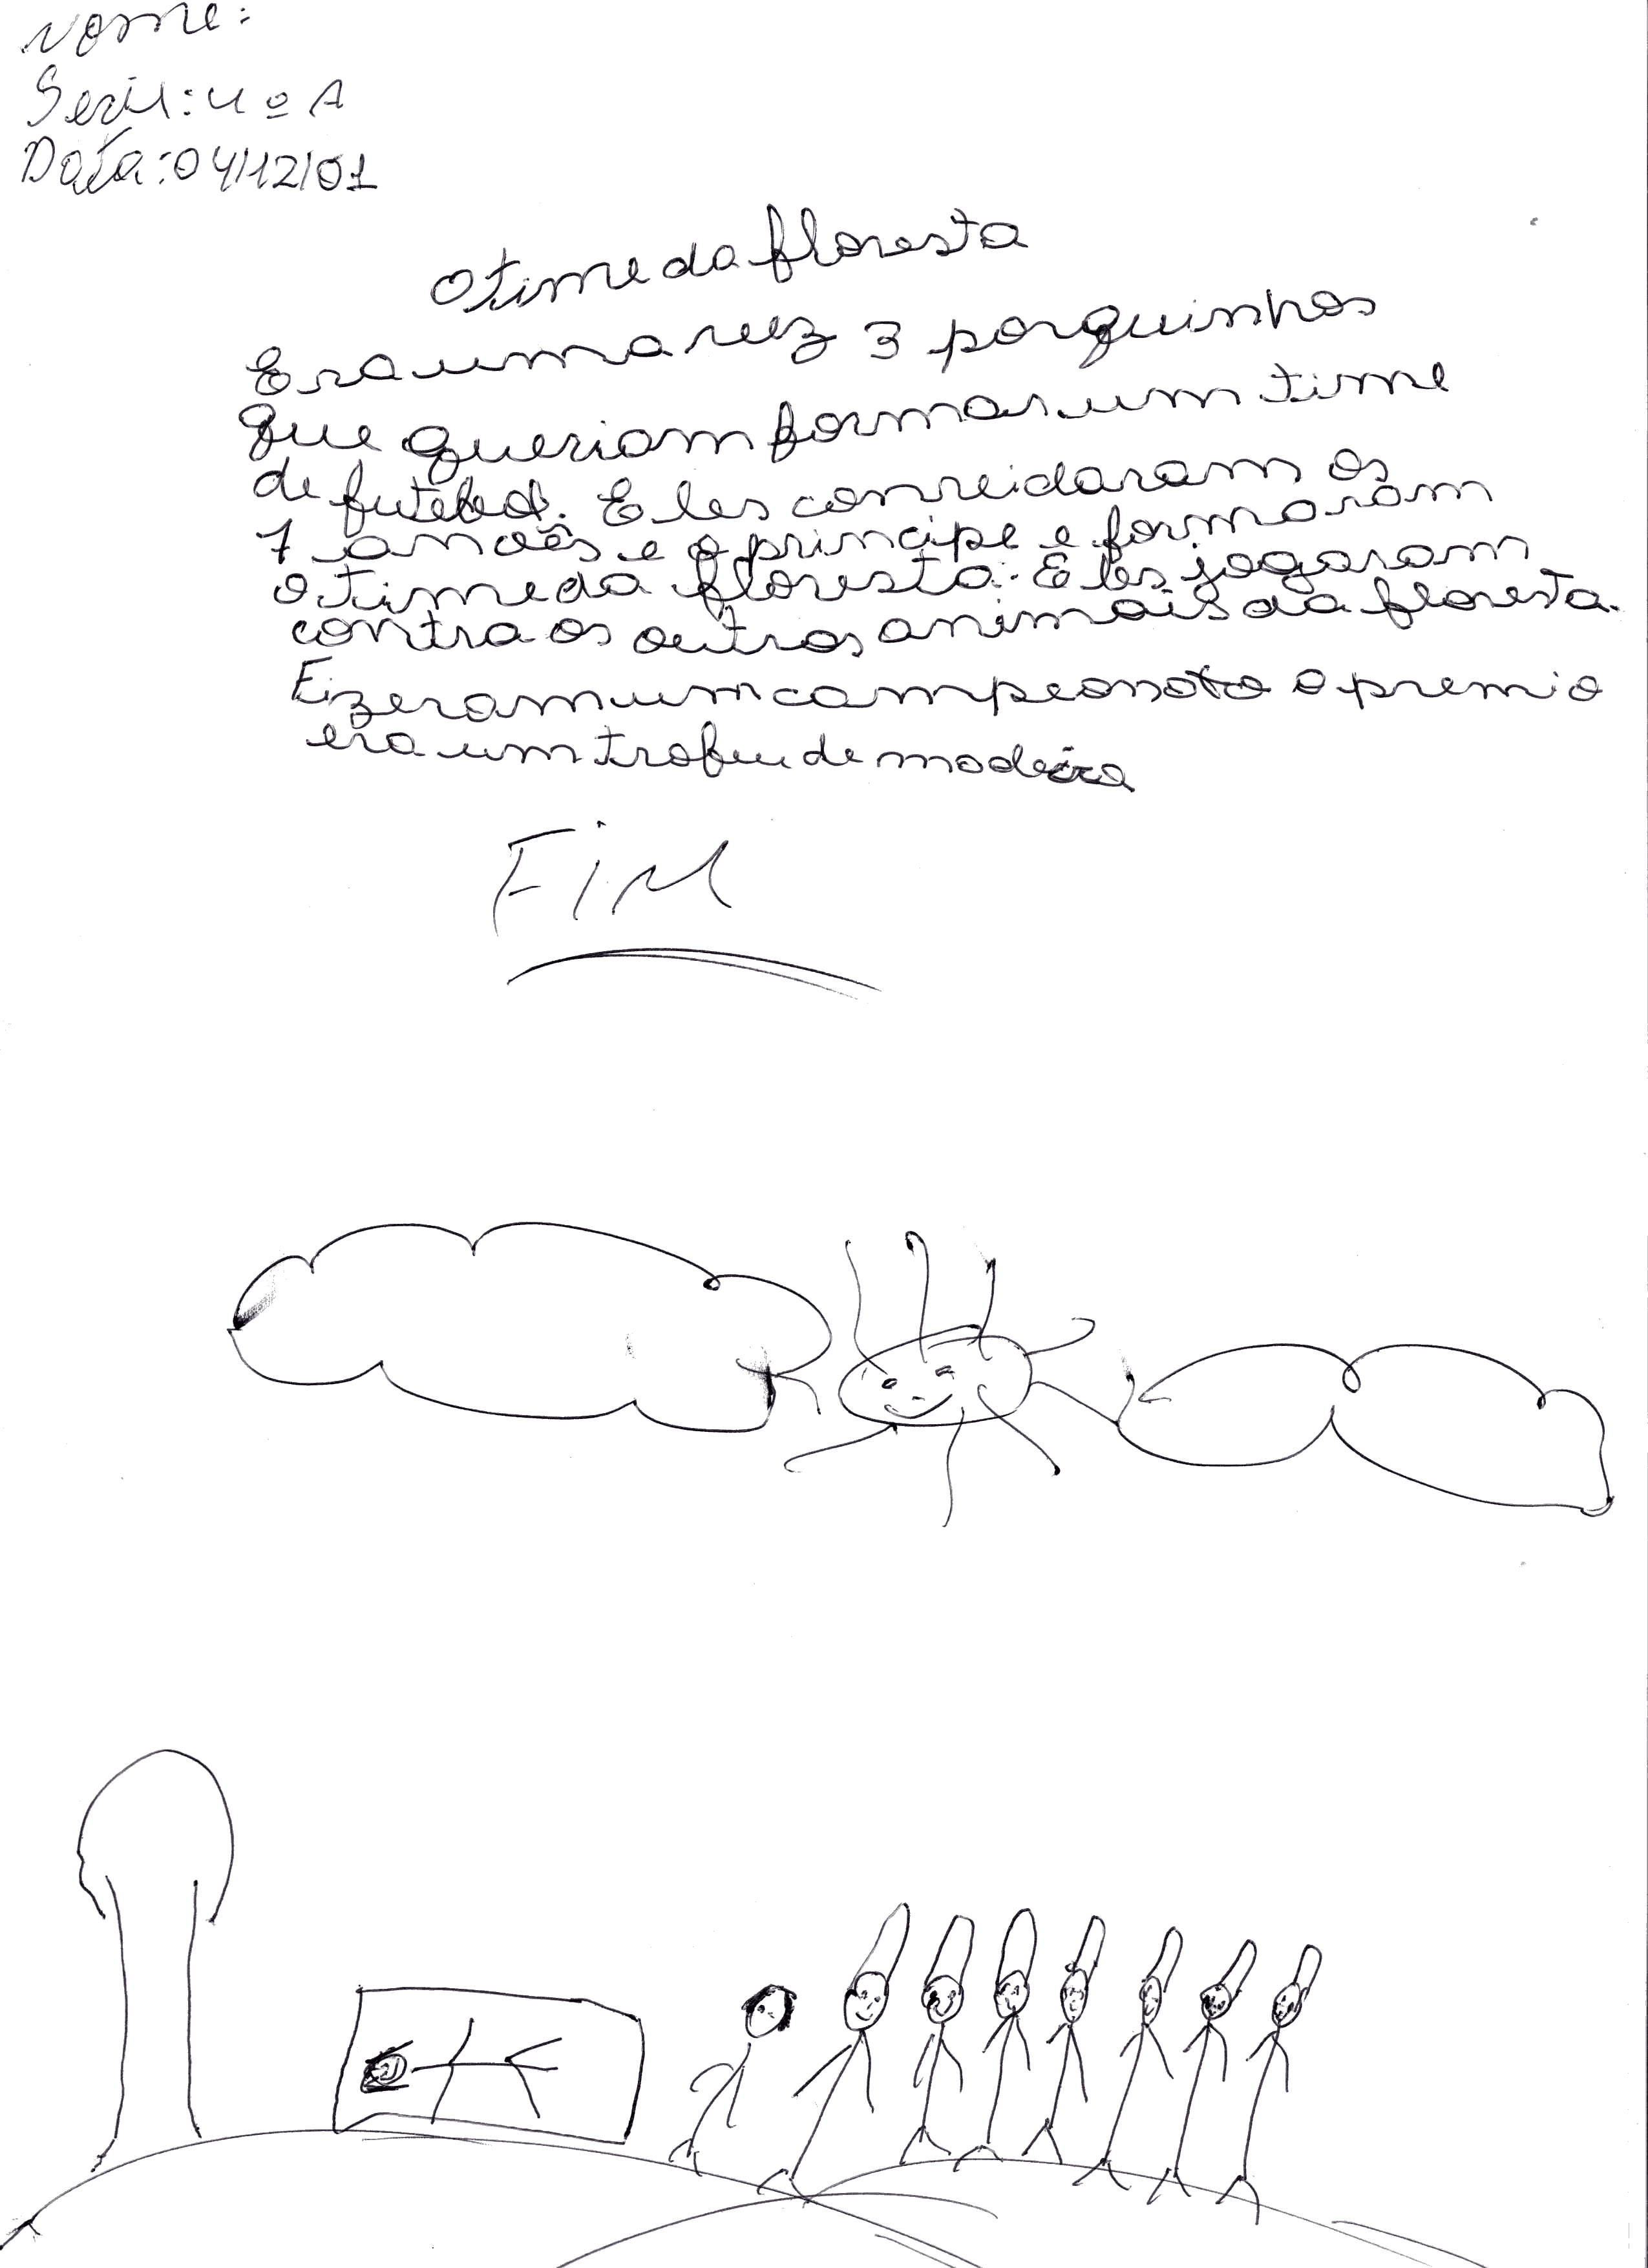 Nome:
Serie: 4º A
Data: 04/12/01
O time da floresta
Era uma vez 3 porquinhos
que queriam formar um time
de futebol. Eles convidaram os
7 anões e o principe e formaram
o time da floresta. Eles jogaram
contra os outros animais da floresta.
Fizeram um campeonato o premio
era um trofeu de madeira
FiM